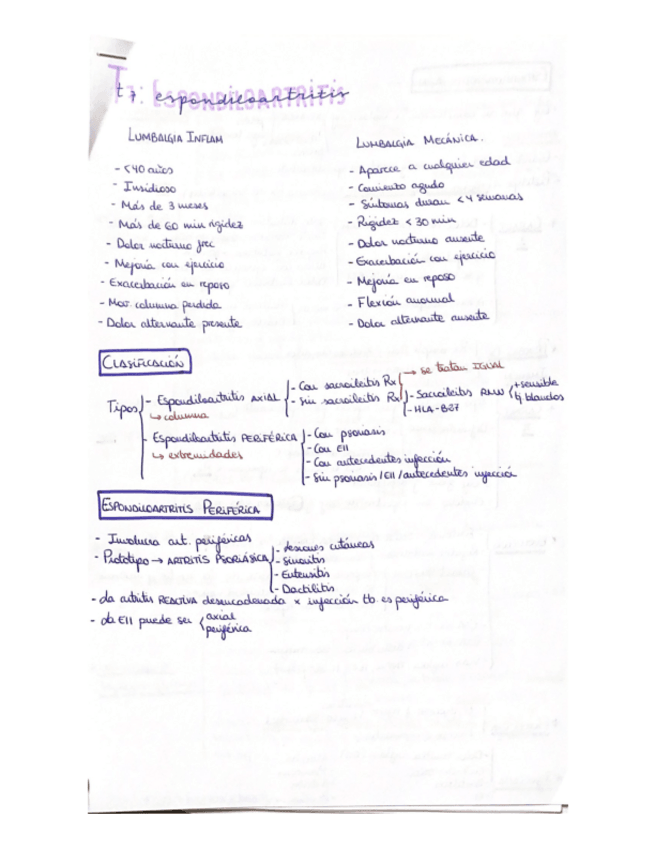 T7: ESPONDILOARTRITIS
t7 espondiloartritis
LUMBALGIA INFLAM
- <40 años
- Insidioso
- Más de 3 meses
- Más de 60 min rigidez
- Dolor nocturno frec
- Mejoría con ejercicio
- Exacerbación en reposo
- Mov. columna perdida
- Dolor alternante presente
LUMBALGIA MECÁNICA.
- Aparece a cualquier edad
- Comienzo agudo
- Síntomas duran <4 semanas
- Rigidez <30 min
- Dolor nocturno ausente
- Exacerbación con ejercicio
- Mejoría en reposo
- Flexión anormal
- Dolor alternante ausente
CLASIFICACIÓN
Tipos
- Espondiloartritis AXIAL
↳ columna
- Con sacroileitis Rx
- Sin sacroileitis Rx
→ se tratan IGUAL
- Sacroileitis RMN (+ sensible tj blandos
- HLA-B27
- Espondiloartritis PERIFÉRICA
↳ extremidades
- Con psoriasis
- Con EII
- Con antecedentes infección
- Sin psoriasis/EII/antecedentes infección
ESPONDILOARTRITIS PERIFÉRICA
- Involucra art. periféricas
- Prototipo → ARTRITIS PSORIÁSICA
- Lesiones cutáneas
- Sinovitis
- Entensitis
- Dactilitis
- La artritis REACTIVA desencadenada x infección tb es periférica
- La EII puede ser
axial
periférica